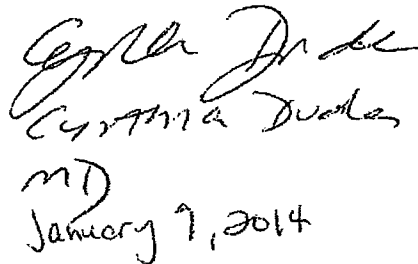 Cynthia Dudas
MD
January 9, 2014